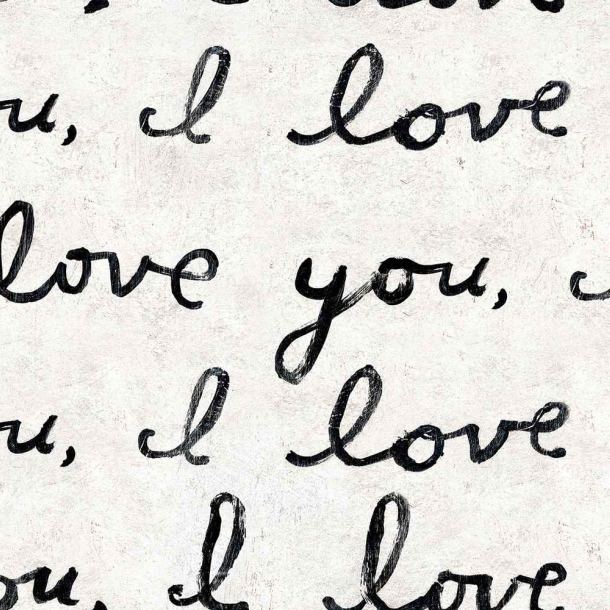 love
u, I love
love you, I
u, I love
ou, I love